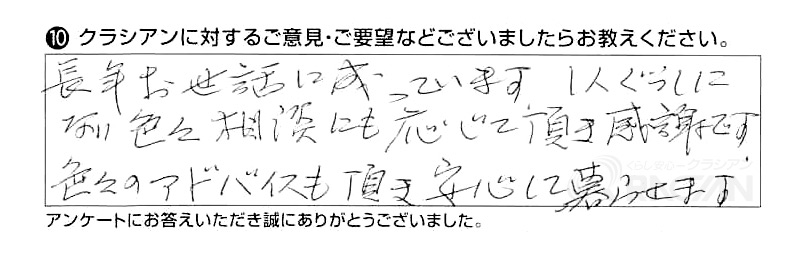 ⑩ クラシアンに対するご意見・ご要望などございましたらお教えください。
長年お世話に成っています 1人ぐらしに
なり色々相談にも応じて頂き感謝です
色々のアドバイスも頂き安心して暮らせます
アンケートにお答えいただき誠にありがとうございました。